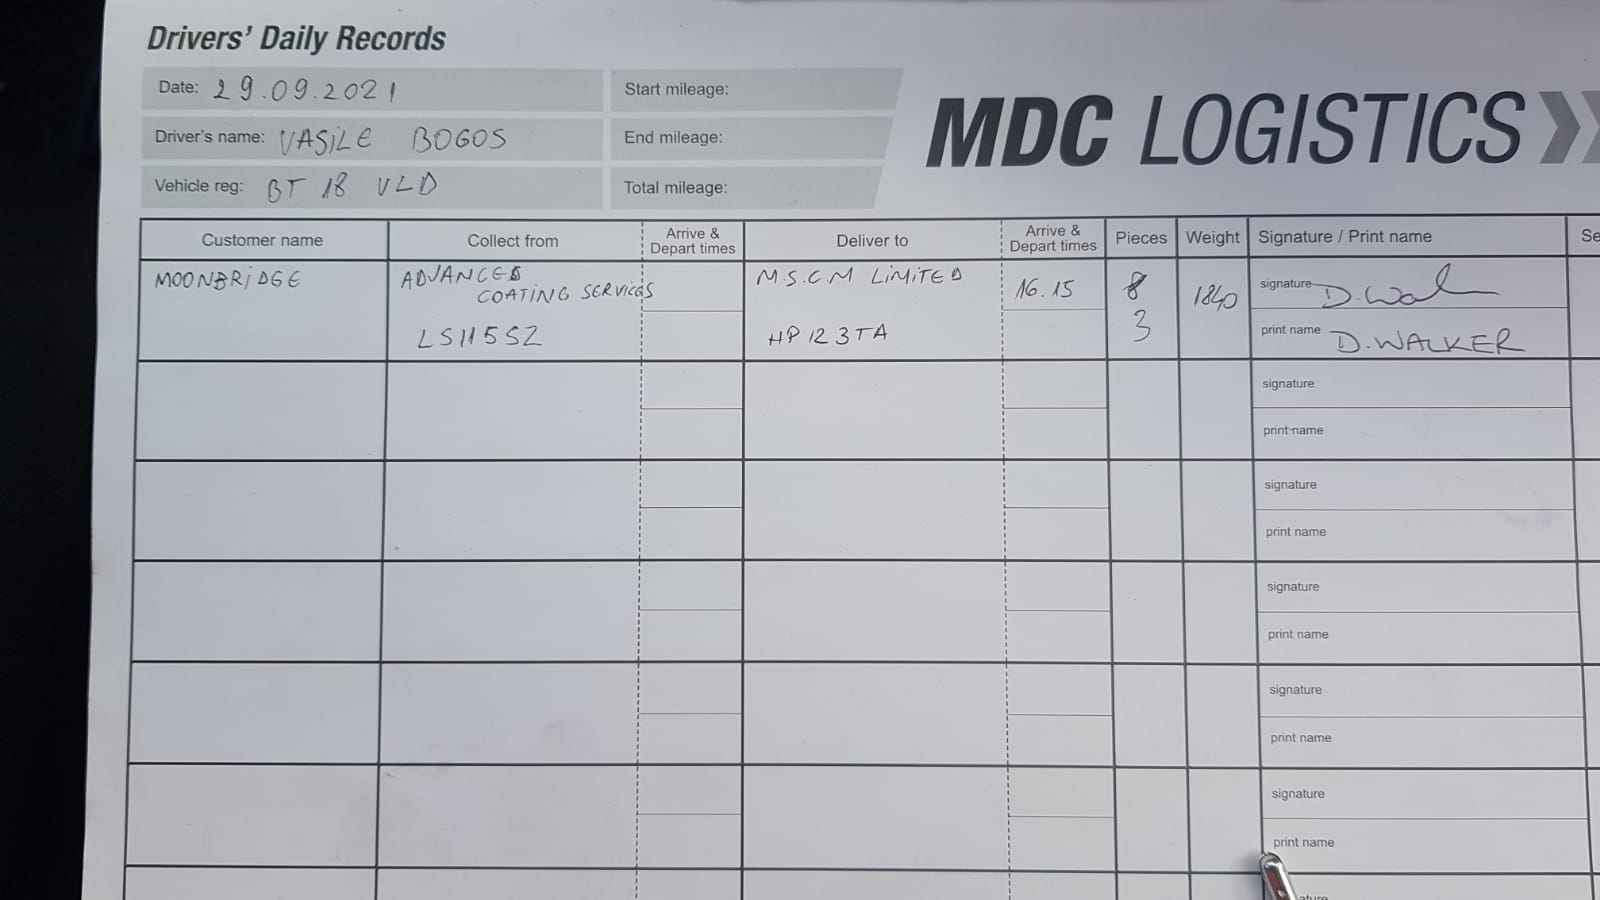 Drivers' Daily Records
MDC LOGISTICS
Date: 29.09.2021
Start mileage:
Driver's name: VASILE BOGOS
End mileage:
Vehicle reg: BT 18 VLD
Total mileage:
Customer name
Collect from
Arrive &
Depart times
Deliver to
Arrive &
Depart times
Pieces
Weight
Signature / Print name
MOONBRIDGE
ADVANCED
COATING SERVICES
LS11 5SZ
M.S.C.M LIMITED
HP12 3TA
16.15
8
3
1840
signature D.Wal
print name D.WALKER
signature
print name
signature
print name
signature
print name
signature
print name
signature
print name